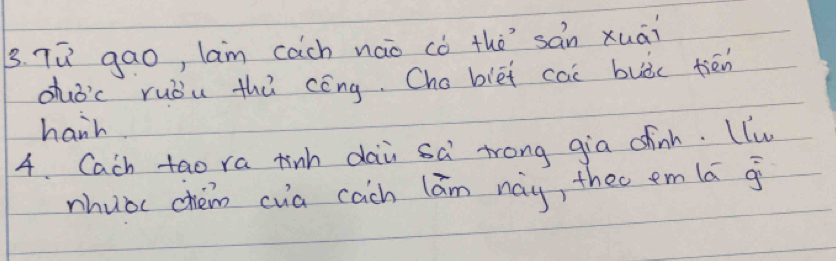 3. Từ gạo, làm cách nào có thể sản xuất
được rượu thủ công. Cho biết các bước tiến
hành.
4. Cách tạo ra tinh dầu sả trong gia đình. Ưu
nhược điểm của cách làm này, theo em là gì